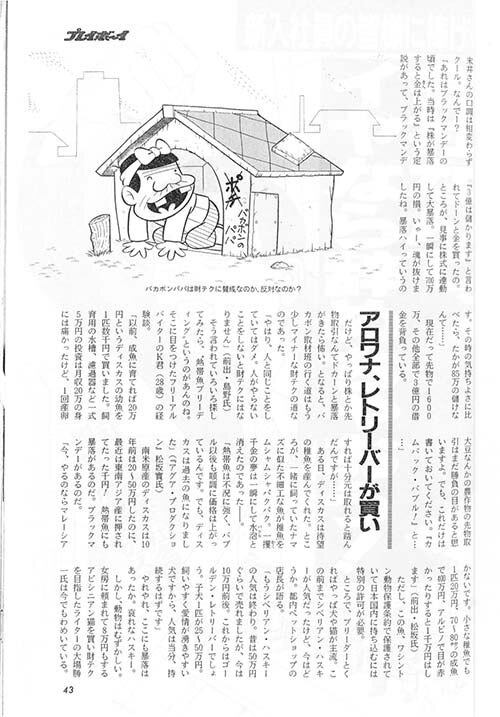 プレイボーイ
末井さんの口調は相変わらず
クール。なんで〜?
「あれはブラックマンデーの
頃でした。当時は『株が暴落
すると金は上がる』という定
説があって、ブラックマンデ
『3億は儲かります』と言わ
れてドーンと金を買ったの。
ところが、見事に株式に連動
して大暴落。一瞬にして700万
円の損。いやー、魂が抜けま
したね。暴落ハイっていうの
す。その時の気持ちよさに比
べたら、たかが85万の儲けな
んて……」
現在だって先物で1600
万、その他全部で3億円の借
金を背負っている。
大豆なんかの農作物の先物取
引はまだ勝負の目があると思
いますよ。でも、これだけは
書いておいてください。『カ
ムバック・バブル!』と…
…」
ポチ
バカボンの
パパ
バカボンパパは財テクに賛成なのか、反対なのか?
アロワナ、レトリーバーが買い
だけど、やっぱり株とか先
物取引なんてドカーンと暴落
がきたら怖い。となると、バ
カボン取材班の行く道はもう
少しマイナーな財テクの道な
のであった。
「やはり、人と同じことをし
ていてはダメ。人がやらない
ことをしないと財テクにはな
りません」(前出・島野氏)
そう言われていろいろ探し
てみたら、「熱帯魚ブリーデ
ィング」というのがあんのね。
そこに目をつけたフリーアル
バイターのK君(28歳)の経
験談。
「以前、成魚に育てれば20万
円というディスカスの幼魚を
1匹数千円で買いました。飼
育用の水槽、濾過器など一式
5万円の投資は月収20万の身
には痛かったけど、1回産卵
すれば十分元は取れると踏ん
だんですが……」
ある日、ディスカスは待望
の稚魚を産んでくれた。とこ
ろが、一緒に飼っていたナマ
ズに似た不細工な魚が稚魚を
ムシャムシャパクパク。一攫
千金の夢は一瞬にして水泡と
消えたのであった——。
「熱帯魚は不況に強く、バブ
ル以後も順調に価格は上がっ
ているんです。でも、ディス
カスは過去の魚になりまし
た」(「アクア・プロダクショ
ン」松坂實氏)
南米原産のディスカスは10
年前は20〜50万円したのに、
最近は東南アジア産に押され
てたった千円!　熱帯魚にも
暴落があるのだ。ブラックマ
ンデーがあるのだ。
「今、やるのならマレーシア
かないです。小さな稚魚でも
1匹20万円、70〜80㌢の成魚
で400万円、アルビノで目が赤
かったりすると1千万円はし
ます」(前出・松坂氏)
ただし、この魚、ワシント
ン動物保護条約で保護されて
いて日本国内に持ち込むには
特別の許可が必要。
ところで、ブリーダーとく
ればやっぱ犬や猫が主流。こ
の前までシベリアン・ハスキ
ーが人気だったけど、今はど
うか。都内ペットショップの
店長が語る。
「もうシベリアン・ハスキー
の人気は終わり。昔は50万円
ぐらいで売れましたが、今は
10万円前後。これからはゴー
ルデン・レトリーバーでしょ
う。子犬1匹が25〜50万円。
飼いやすく愛情が湧きやすい
犬ですから、人気は当分、持
続するはずです」
やれやれ、ここにも暴落は
あったか。哀れなハスキー。
しかし、動物はむずかしい。
女房に頼まれて8万円もする
アビシニアン猫を買い財テク
を目指したライターの大場勝
一氏は今でもわめいている。
43